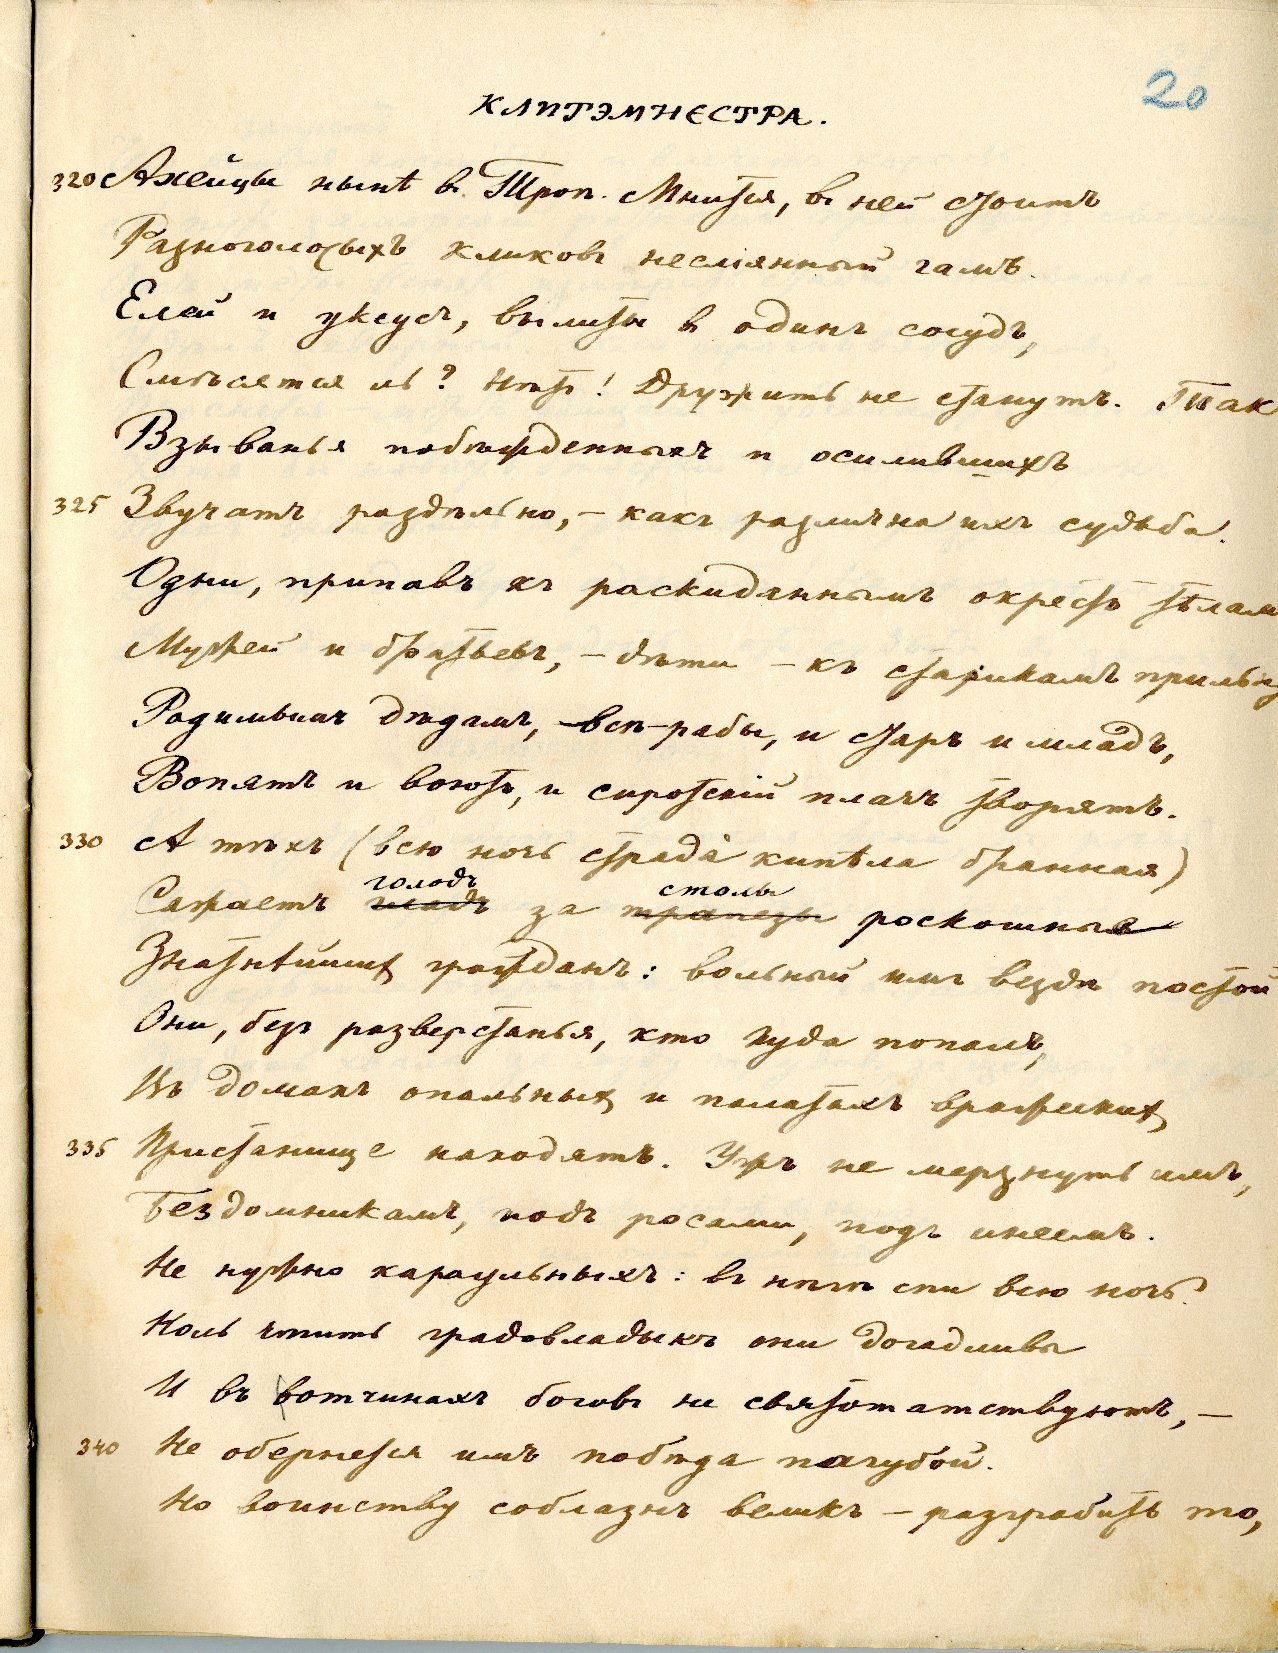 20
КЛИТЭМНЕСТРА.
320 Ахейцы нынѣ въ Троѣ. Мнится, въ ней стоитъ
Разноголосыхъ кликовъ несліянный гамъ.
Елей и уксусъ, вылиты въ одинъ сосудъ,
Смѣсятся ль? Нѣтъ! Дружить не станутъ. Такъ
Взыванья побѣжденныхъ и осилившихъ
325 Звучатъ раздѣльно, – какъ различна ихъ судьба.
Одни, припавъ къ раскиданнымъ окрестъ тѣламъ
Мужей и братьевъ, – дѣти – къ старикамъ прильну
Родимымъ дѣдамъ, – всѣ – рабы, и старъ и младъ,
Вопятъ и воютъ, и сиротскій плачъ творятъ.
330 А тѣхъ (всю ночь страда кипѣла бранная)
голодъ столы
Сажаетъ гладъ за трапезы роскошные
Знатнѣйшихъ гражданъ: вольный имъ вездѣ постой
Они, безъ разверстанья, кто куда попалъ,
Въ домахъ опальныхъ и палатахъ вражескихъ
335 Пристанище находятъ. Ужъ не мерзнуть имъ,
Бездомникамъ, подъ росами, подъ инеемъ.
Не нужно караульныхъ: въ нѣгѣ спи всю ночь.
Коль чтить градовладыкъ они догадливы
И въ вотчинахъ боговъ не святотатствуютъ, –
340 Не обернется имъ побѣда пагубой.
Но воинству соблазнъ великъ – разграбить то,